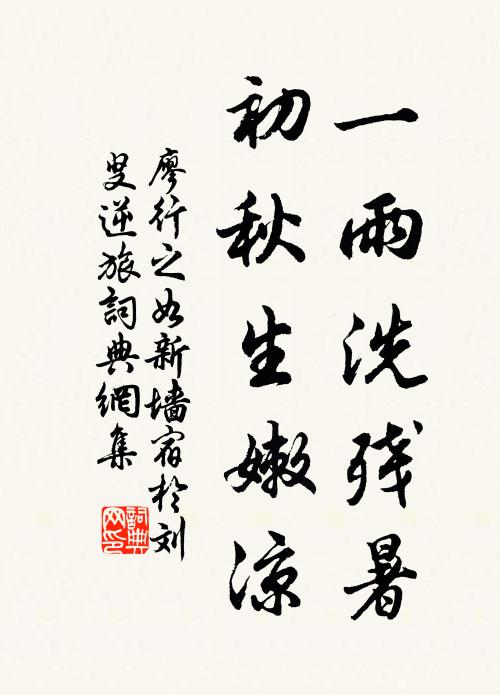 一雨洗残暑
初秋生嫩凉
廖行之如新墙宿於刘
叟逆旅詞典網集
詞典网印